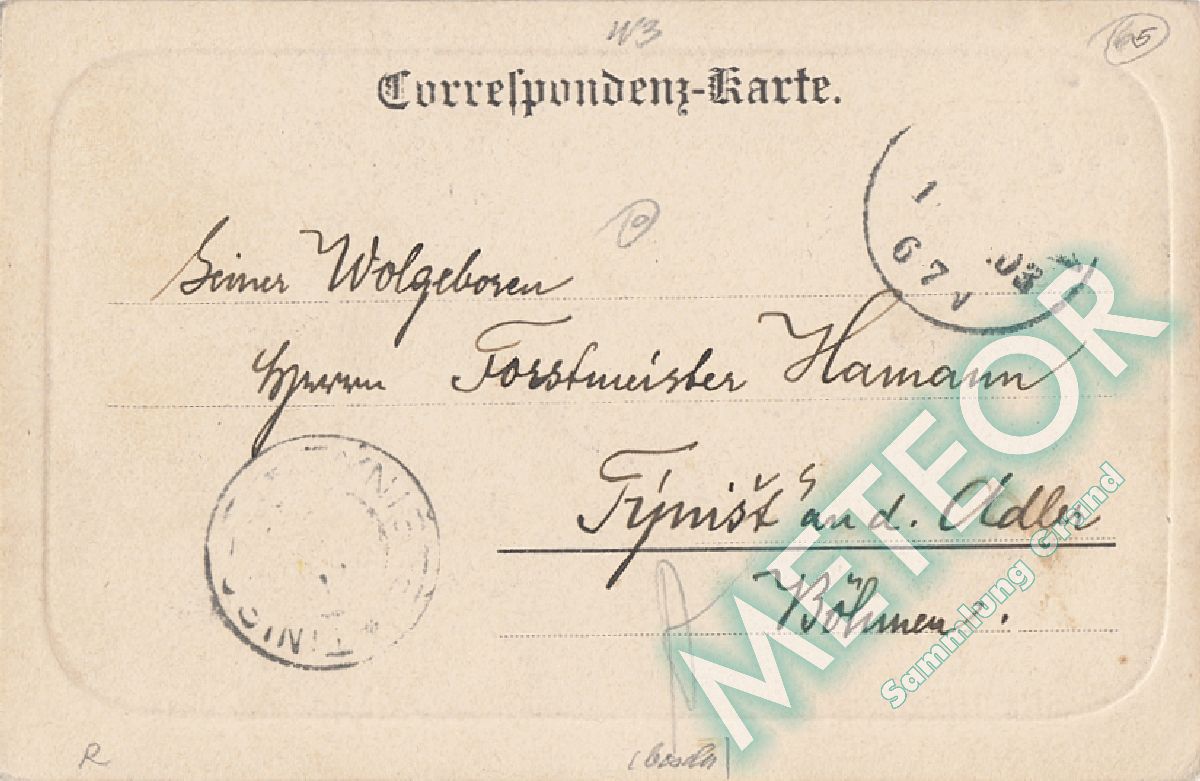 W3
65
Correspondenz-Karte.
1
67
Seiner Wolgeboren
Herrn Forstmeister Hamann
Týništ an d. Adler
Böhmen.
METEOR
Sammlung Gründ
R